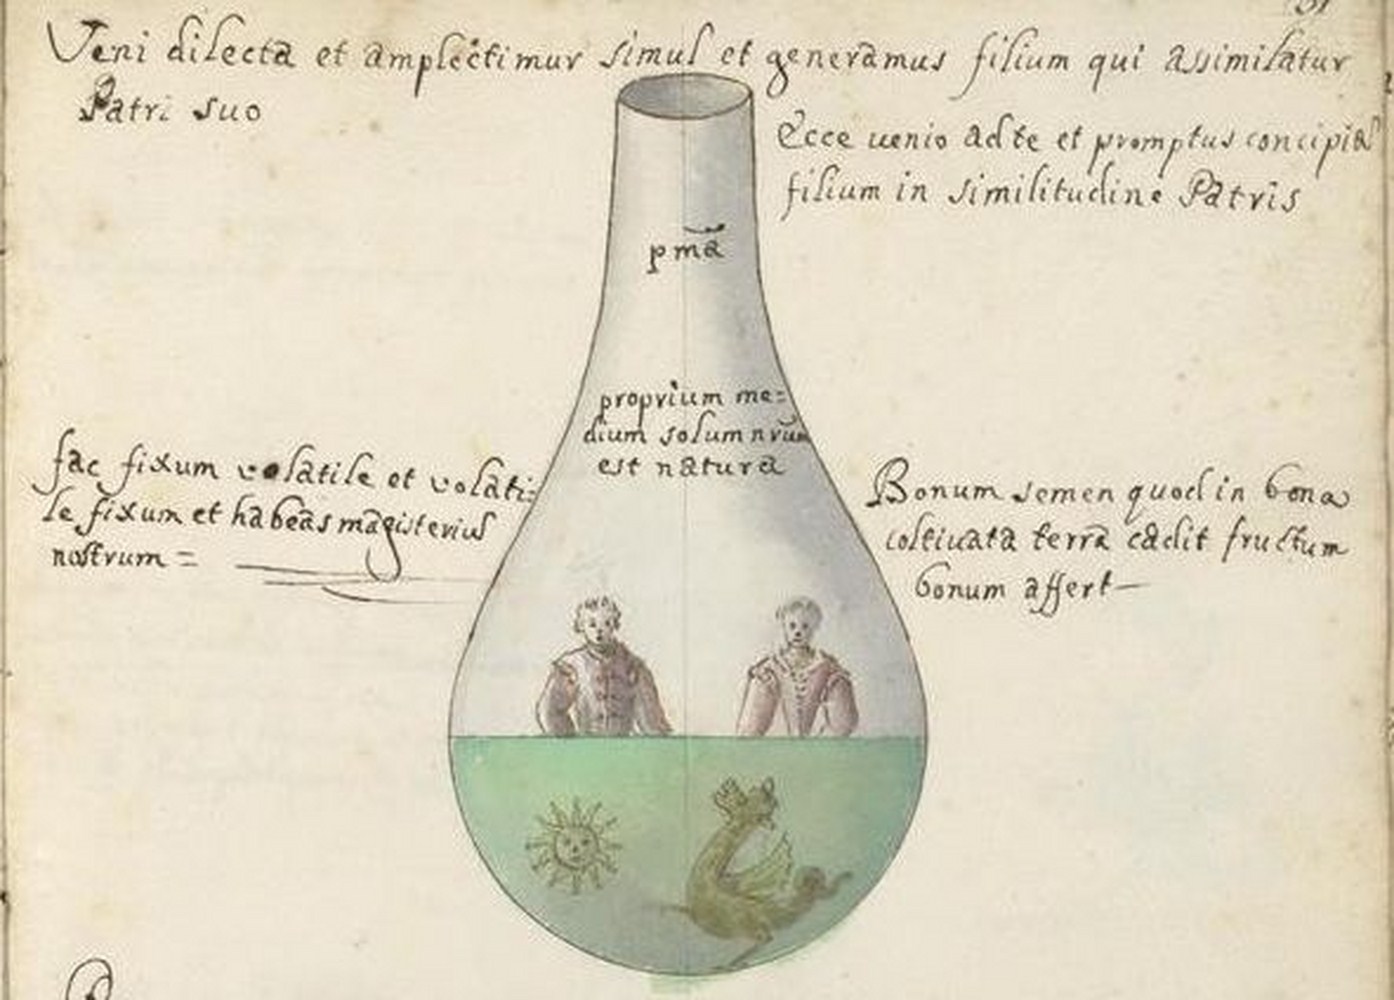 Veni dilecta et amplectimur simul et generamus filium qui assimilatur
Patri suo
Ecce uenio ad te et promptus concipiā
filium in similitudine Patris
pma̅
proprium me=
dium solum nrūm
est natura
fac fixum volatile et volati=
le fixum et habeas magisteriū
nostrum =
Bonum semen quod in bona
coltiuata terra cadit fructum
bonum affert